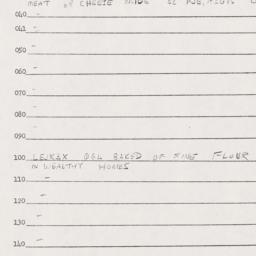 MEAT OF CHEESE MADE
040 -
041 -
050 -
060 -
070 -
080 -
090
100 LEJKAX OGL BAKED OF FINE FLOUR
IN WEALTHY HOMES
110 -
120 -
130 -
140 -